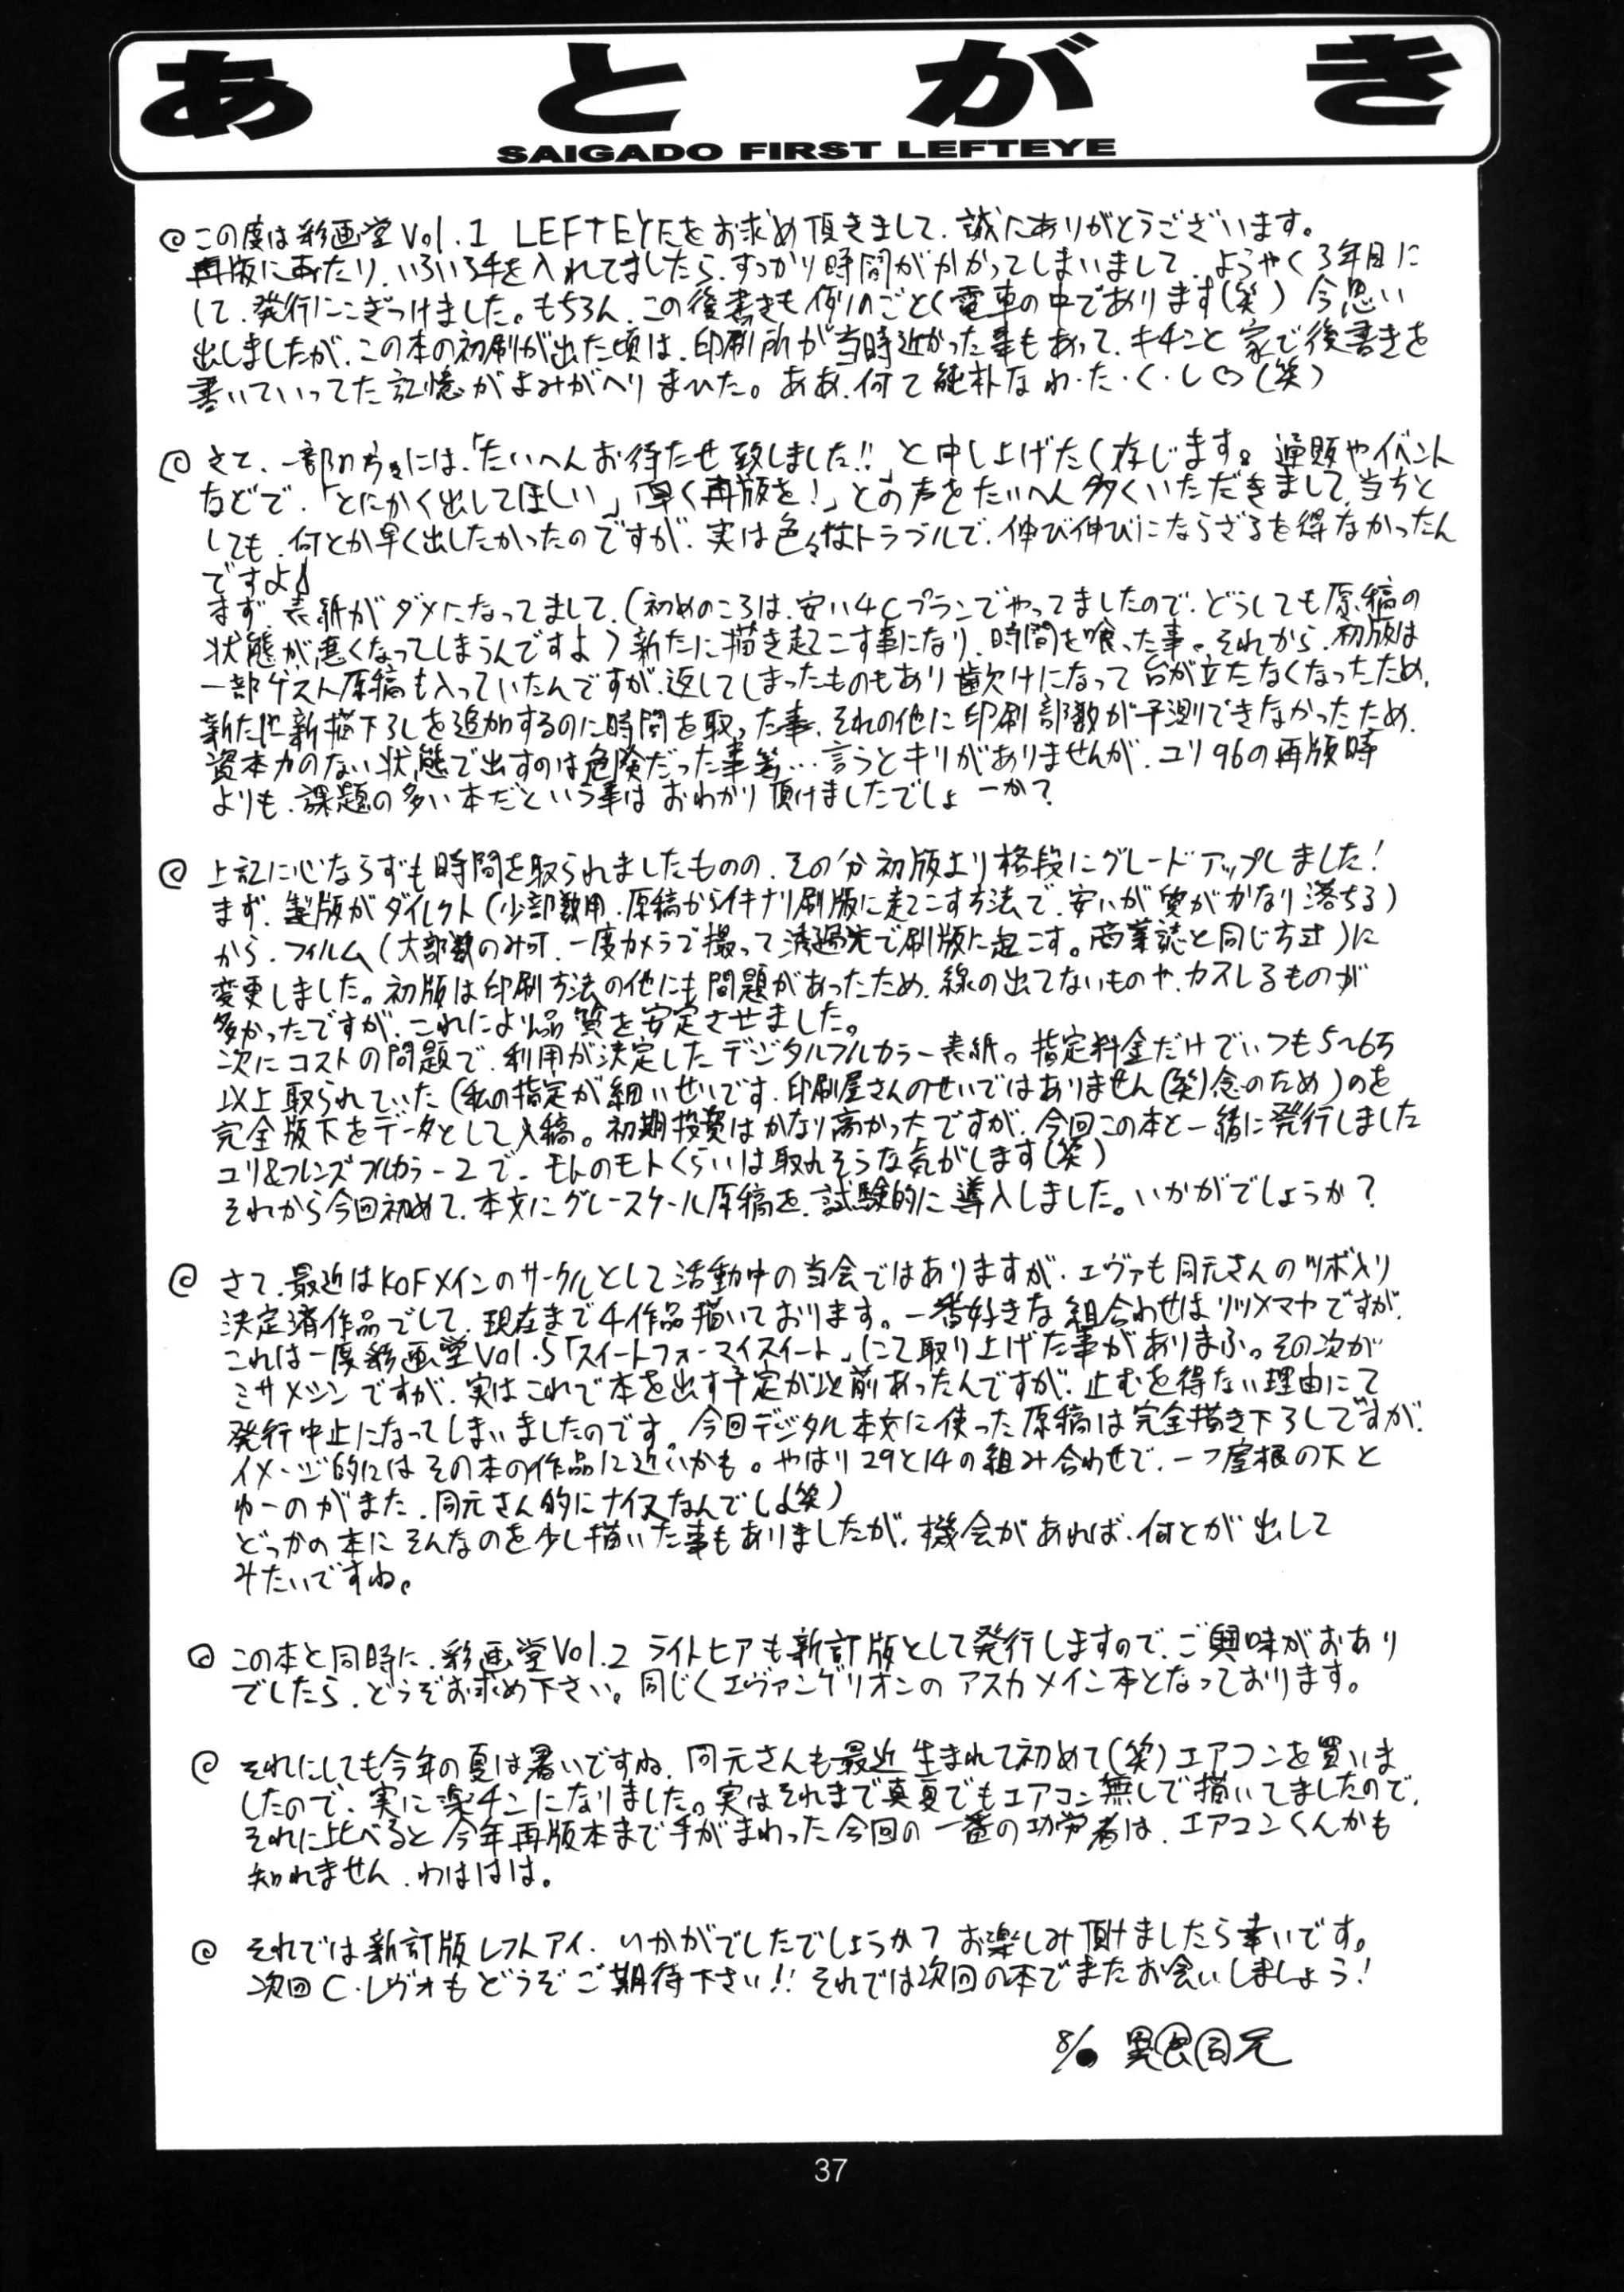 あとがき
SAIGADO FIRST LEFTEYE
@この度は彩画堂Vol.1 LEFTEYEをお求め頂きまして、誠にありがとうございます。
再版にあたり、いろいろ手を入れてましたら、すっかり時間がかかってしまいまして、ようやく3年目に
して、発行にこぎつけました。もちろん、この後書きも例のごとく電車の中であります(笑) 今思い
出しましたが、この本の初刷が出た頃は、印刷所が当時近かった事もあって、キチンと家で後書きを
書いていってた記憶がよみがへりまひた。ああ、何て純朴なわ・た・く・し♡(笑)
@さて、一部の方々には、「たいへんお待たせ致しました!!」と申し上げたく存じます。通販やイベント
などで、「とにかく出してほしい」「早く再版を!」との声をたいへん多くいただきまして、当方と
しても、何とか早く出したかったのですが、実は色々なトラブルで、伸び伸びにならざるを得なかったん
ですよ
まず、表紙がダメになってまして、(初めのころは、安い4Cプランでやってましたので、どうしても原稿の
状態が悪くなってしまうんですよ)新たに描き起こす事になり、時間を喰った事。それから、初版は
一部ゲスト原稿も入っていたんですが、返してしまったものもあり歯欠けになって台が立たなくなったため、
新たに新描下ろしを追加するのに時間を取った事、それの他に印刷部数が予測できなかったため、
資本力のない状態で出すのは危険だった事等…言うとキリがありませんが、ユリ96の再版時
よりも、課題の多い本だという事はおわかり頂けましたでしょーか?
@上記に心ならずも時間を取られましたものの、その分初版より格段にグレードアップしました!
まず、製版がダイレクト(少部数用、原稿からイキナリ刷版に起こす方法で、安いが質がかなり落ちる)
から、フィルム(大部数のみ可、一度カメラで撮って透過光で刷版に起こす。商業誌と同じ方式)に
変更しました。初版は印刷方法の他にも問題があったため、線の出てないものや、カスレるものが
多かったですが、これにより品質を安定させました。
次にコストの問題で、利用が決定したデジタルフルカラー表紙。指定料金だけでいつも5~6万
以上取られていた(私の指定が細いせいです、印刷屋さんのせいではありません(笑)念のため)のを
完全版下をデータとして入稿。初期投資はかなり高かったですが、今回この本と一緒に発行しました
ユリ&フレンズフルカラー2で、モトのモトくらいは取れそうな気がします(笑)
それから今回初めて、本文にグレースケール原稿を、試験的に導入しました。いかがでしょうか?
@さて、最近はKOFメインのサークルとして活動中の当会ではありますが、エヴァも同元さんのツボ入り
決定済作品でして、現在まで4作品描いております。一番好きな組合わせはリツ×マヤですが、
これは一度彩画堂Vol.5「スイートフォーマイスイート」にて取り上げた事がありまふ。その次が
ミサ×シンですが、実はこれで本を出す予定が以前あったんですが、止むを得ない理由にて
発行中止になってしまいましたのです。今回デジタル本文に使った原稿は完全描き下ろしですが、
イメージ的にはその本の作品に近いかも。やはり29と14の組み合わせで、一つ屋根の下と
ゆーのがまた、同元さん的にナイスなんでしょ(笑)
どっかの本にそんなのを少し描いた事もありましたが、機会があれば、何とか出して
みたいですね。
@この本と同時に、彩画堂Vol.2 ライトヒアも新訂版として発行しますので、ご興味がおあり
でしたら、どうぞお求め下さい。同じくエヴァンゲリオンのアスカメイン本となっております。
@それにしても今年の夏は暑いですね、同元さんも最近生まれて初めて(笑)エアコンを買いま
したので、実に楽チンになりました。実はそれまで真夏でもエアコン無しで描いてましたので、
それに比べると今年再版本まで手がまわった今回の一番の功労者は、エアコンくんかも
知れません、わははは。
@それでは新訂版レフトアイ、いかがでしたでしょうか? お楽しみ頂けましたら幸いです。
次回C・レヴォもどうぞご期待下さい!! それでは次回の本でまたお会いしましょう!
異国同元
37